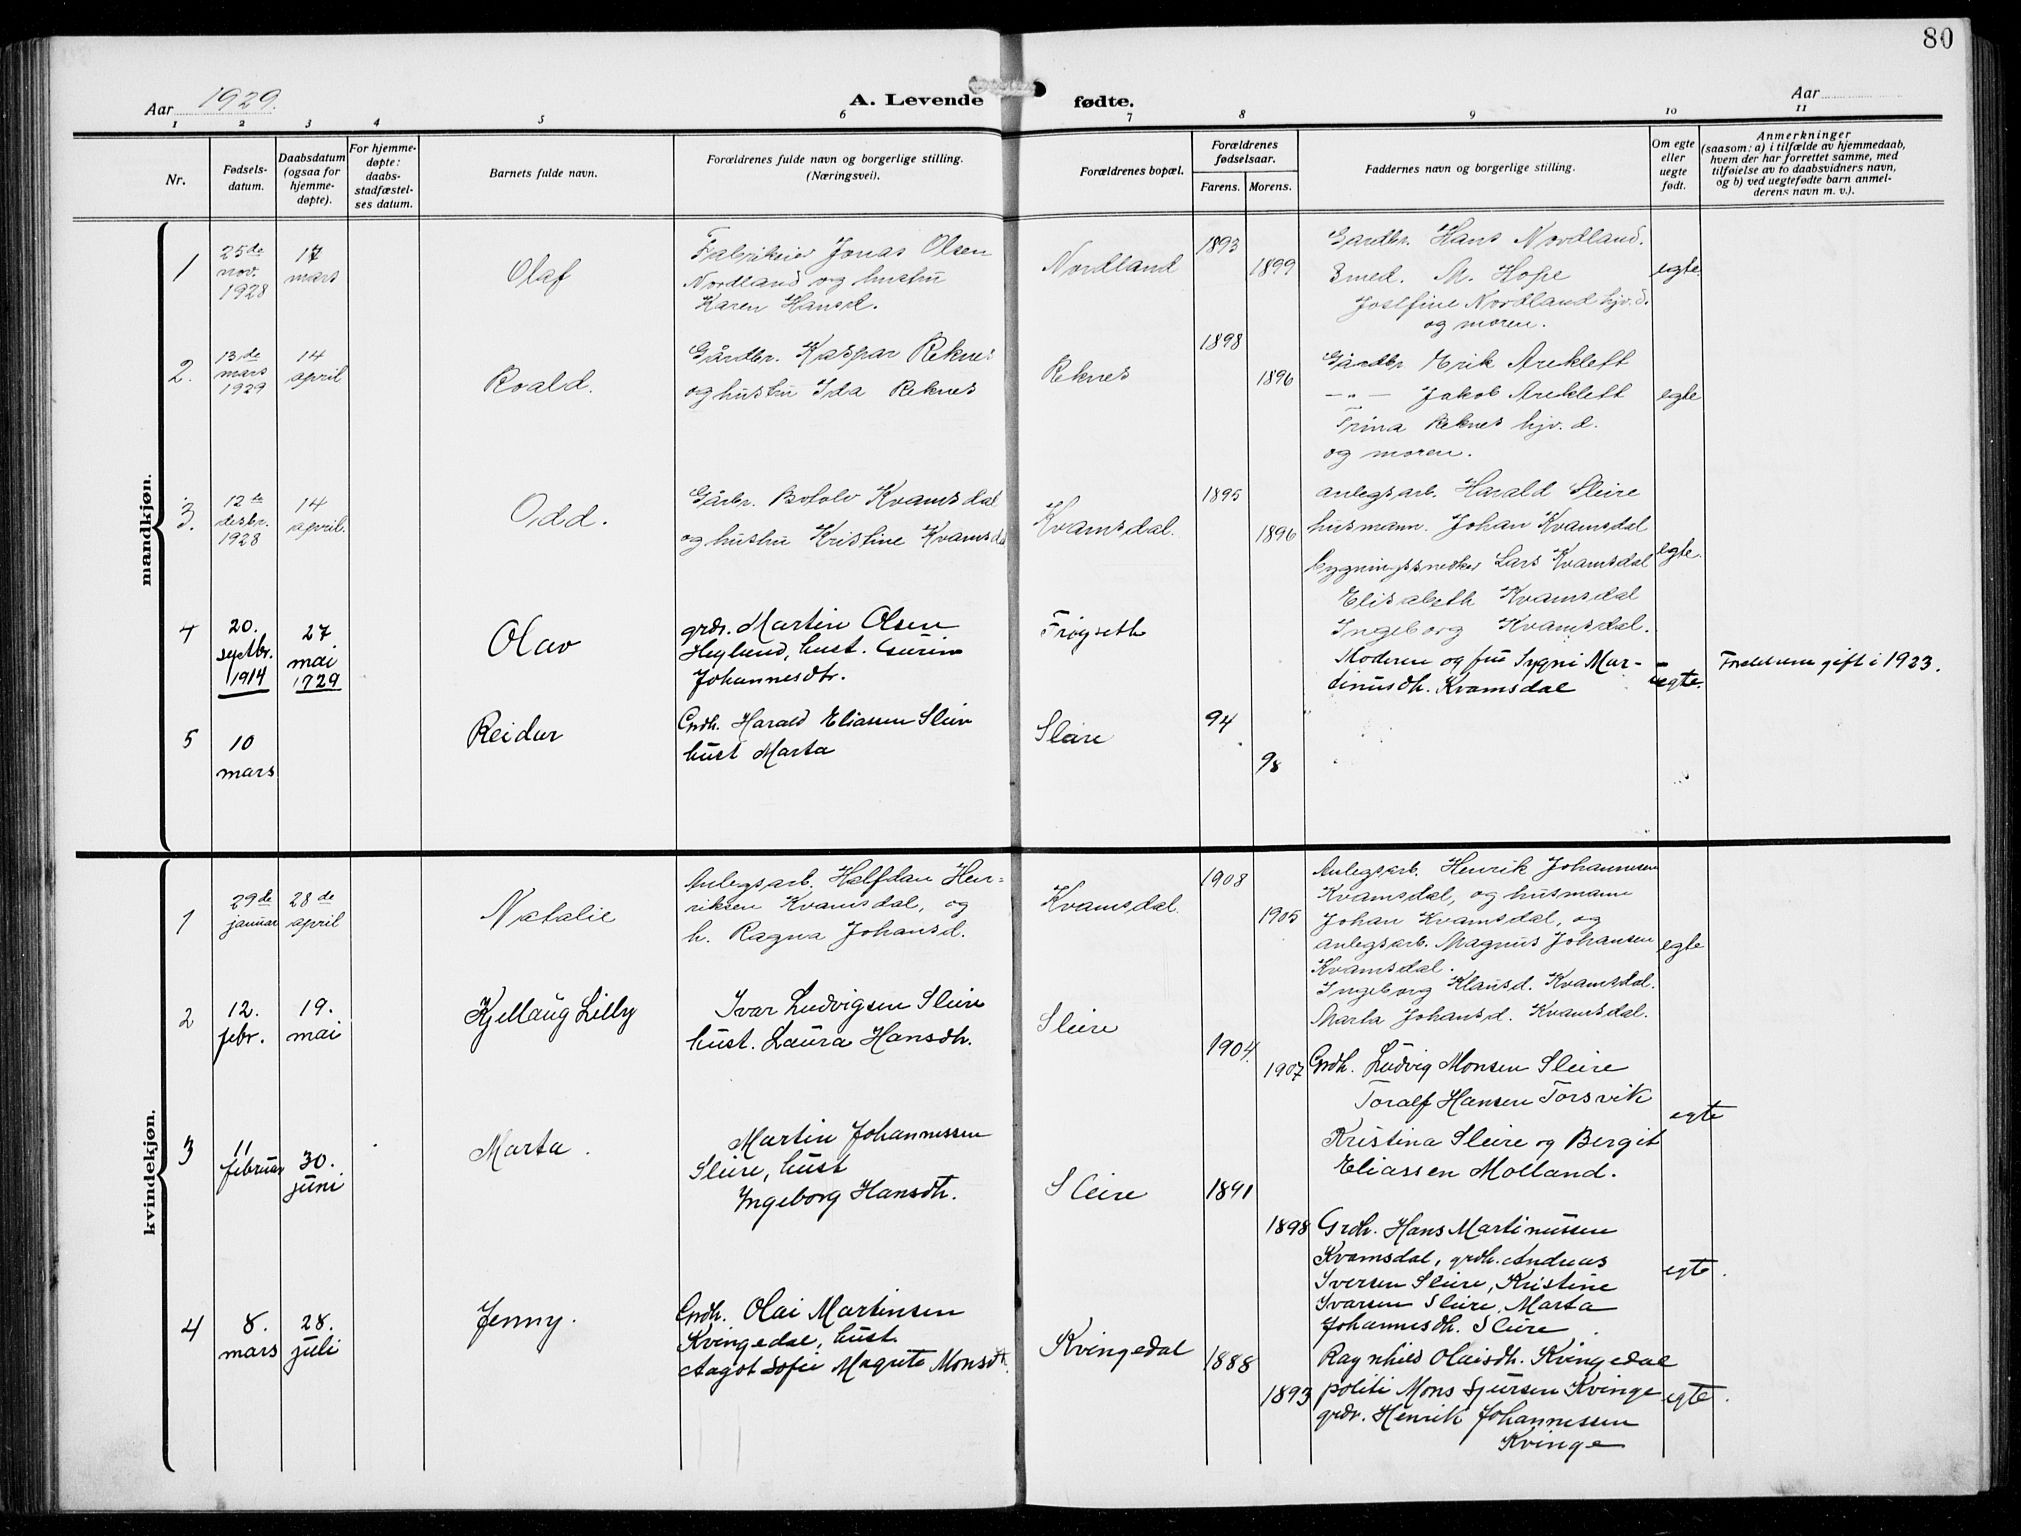 80
Aar 1929.
A. Levende fødte.
Aar
1 2 3 4 5 6 7 8 9 10 11
Nr.
Fødsels-
datum.
Daabsdatum
(ogsaa for
hjemme-
døpte).
For hjemme-
døpte:
daabs-
stadfæstel-
ses datum.
Barnets fulde navn.
Forældrenes fulde navn og borgerlige stilling.
(Næringsvei).
Forældrenes bopæl.
Forældrenes
fødselsaar.
Farens. Morens.
Faddernes navn og borgerlige stilling.
Om egte
eller
uegte
født.
Anmerkninger
(saasom: a) i tilfælde av hjemmedaab,
hvem der har forrettet samme, med
tilføielse av to daabsvidners navn,
og b) ved uegtefødte barn anmel-
derens navn m. v.).
mandkjøn.
1
25de
nov.
1928
17
mars
Olaf
Fabrikeier Jonas Olsen
Nordland og hustru
Karen Hansd.
Nordland
1893
1899
Gardbr. Hans Nordland.
Smed. M. Hope
Josefine Nordland hjv. d.
og moren.
egte
2.
13de
mars
1929
14
april
Roald.
Gårdbr. Kaspar Reknes
og hustru Ida Reknes
Reknes
1898
1896
Gårdbr Erik Arekleft
— " — Jakob Arekleft
Trina Reknes hjv. d.
og moren.
egte
3.
12te
desbr.
1928
14
april.
Odd.
Gårbr. Botolv Kvamsdal
og hustru Kristine Kvamsdal
Kvamsdal.
1895
1896
anlegsarb. Harald Sleire
husmann. Johan Kvamsdal
bygningssnedker Lars Kvamsdal
Elisabeth Kvamsdal
Ingeborg Kvamsdal.
egte.
4
20.
septbr.
1914
27
mai
1929
Olav
grdr. Martin Olsen
Heglund, hust. Gurine
Johannesdtr.
Frøyseth
Moderen og frü Sygni Mar-
tinusdtr. Kvamsdal
uegte.
Foreldrene gift i 1923.
5
10
mars
Reidar
Grdbr. Harald Eliassen Sleire
hust Marta
Sleire
94
98
kvindekjøn.
1
29de
januar
28de
april
Natalie
Anlegsarb. Halfdan Hen-
riksen Kvamsdal, og
h. Ragna Johansd.
Kvamsdal.
1908
1905
Anlegsarb. Henrik Johannesen
Kvamsdal, og husmann
Johan Kvamsdal, og
anlegsarb. Magnus Johansen
Kvamsdal.
Ingeborg Klausd. Kvamsdal.
Marta Johansd. Kvamsdal.
egte
2
12.
febr.
19.
mai
Kjellaug Lilly
Ivar Ludvigsen Sleire
hust. Laura Hansdtr.
Sleire
1904.
1907
Grdbr. Ludvig Monsen Sleire
Toralf Hansen Torsvik
Kristina Sleire og Bergit
Eliassen Molland.
egte
3
11
februar
30.
juni
Marta.
Martin Johannessen
Sleire, hust
Ingeborg Hansdtr.
Sleire
1891
1898
Grdbr. Hans Martinussen
Kvamsdal, grdbr. Andreas
Iversen Sleire, Kristine
Ivarsen Sleire, Marta
Johannesdtr. Sleire
egte.
4
8.
mars
28.
juli
Jenny.
Grdbr. Olai Martinsen
Kvingedal, hust.
Aagot Sofie Magrete Monsdtr.
Kvingedal
1888
1893
Raynhild Olaisdtr. Kvingedal
politi Mons Sjursen Kvinge
grdr. Henrik Johannessen
Kvinge
egte.